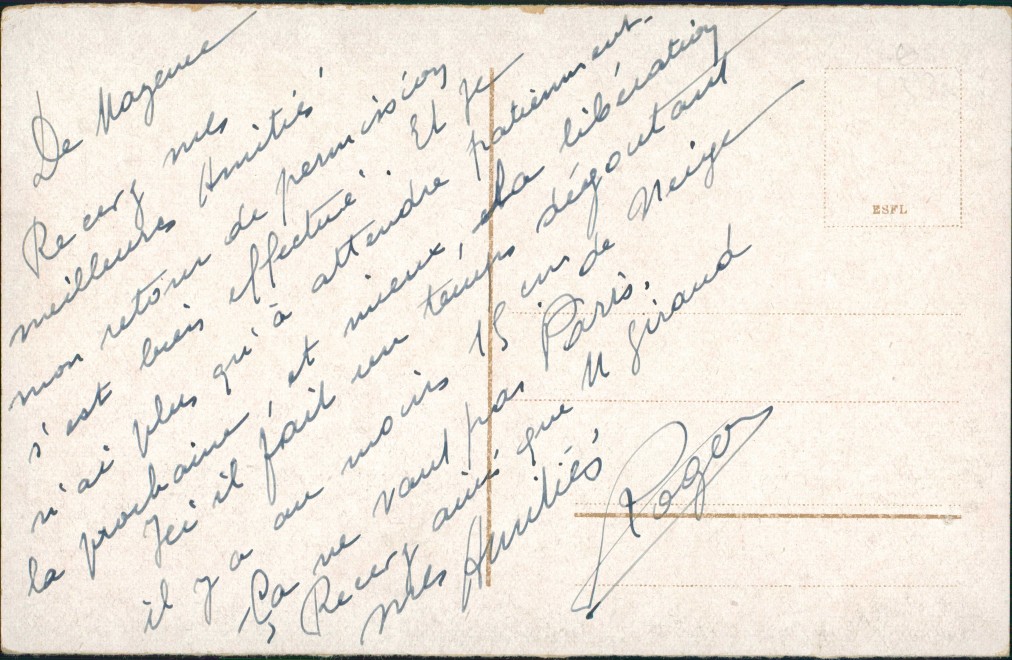 De Mayence
Recevez mes
meilleures Amitiés
mon retour de permission
s'est bien effectué. Et je
n'ai plus qu'à attendre patiemment.
la prochaine et mieux, la libération
Ici il fait un temps dégoutant
il y a au moins 15 cm de Neige
Ça ne vaut pas Paris.
Recevez ainsi que M Giraud
mes Amitiés
Roger
ESFL